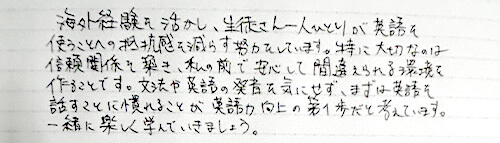 海外経験を活かし、生徒さん一人ひとりが英語を
使うことへの抵抗感を減らす努力をしています。特に大切なのは
信頼関係を築き、私の前で安心して間違えられる環境を
作ることです。文法や英語の発音を気にせず、まずは英語を
話すことに慣れることが英語力向上の第1歩だと考えています。
一緒に楽しく学んでいきましょう。